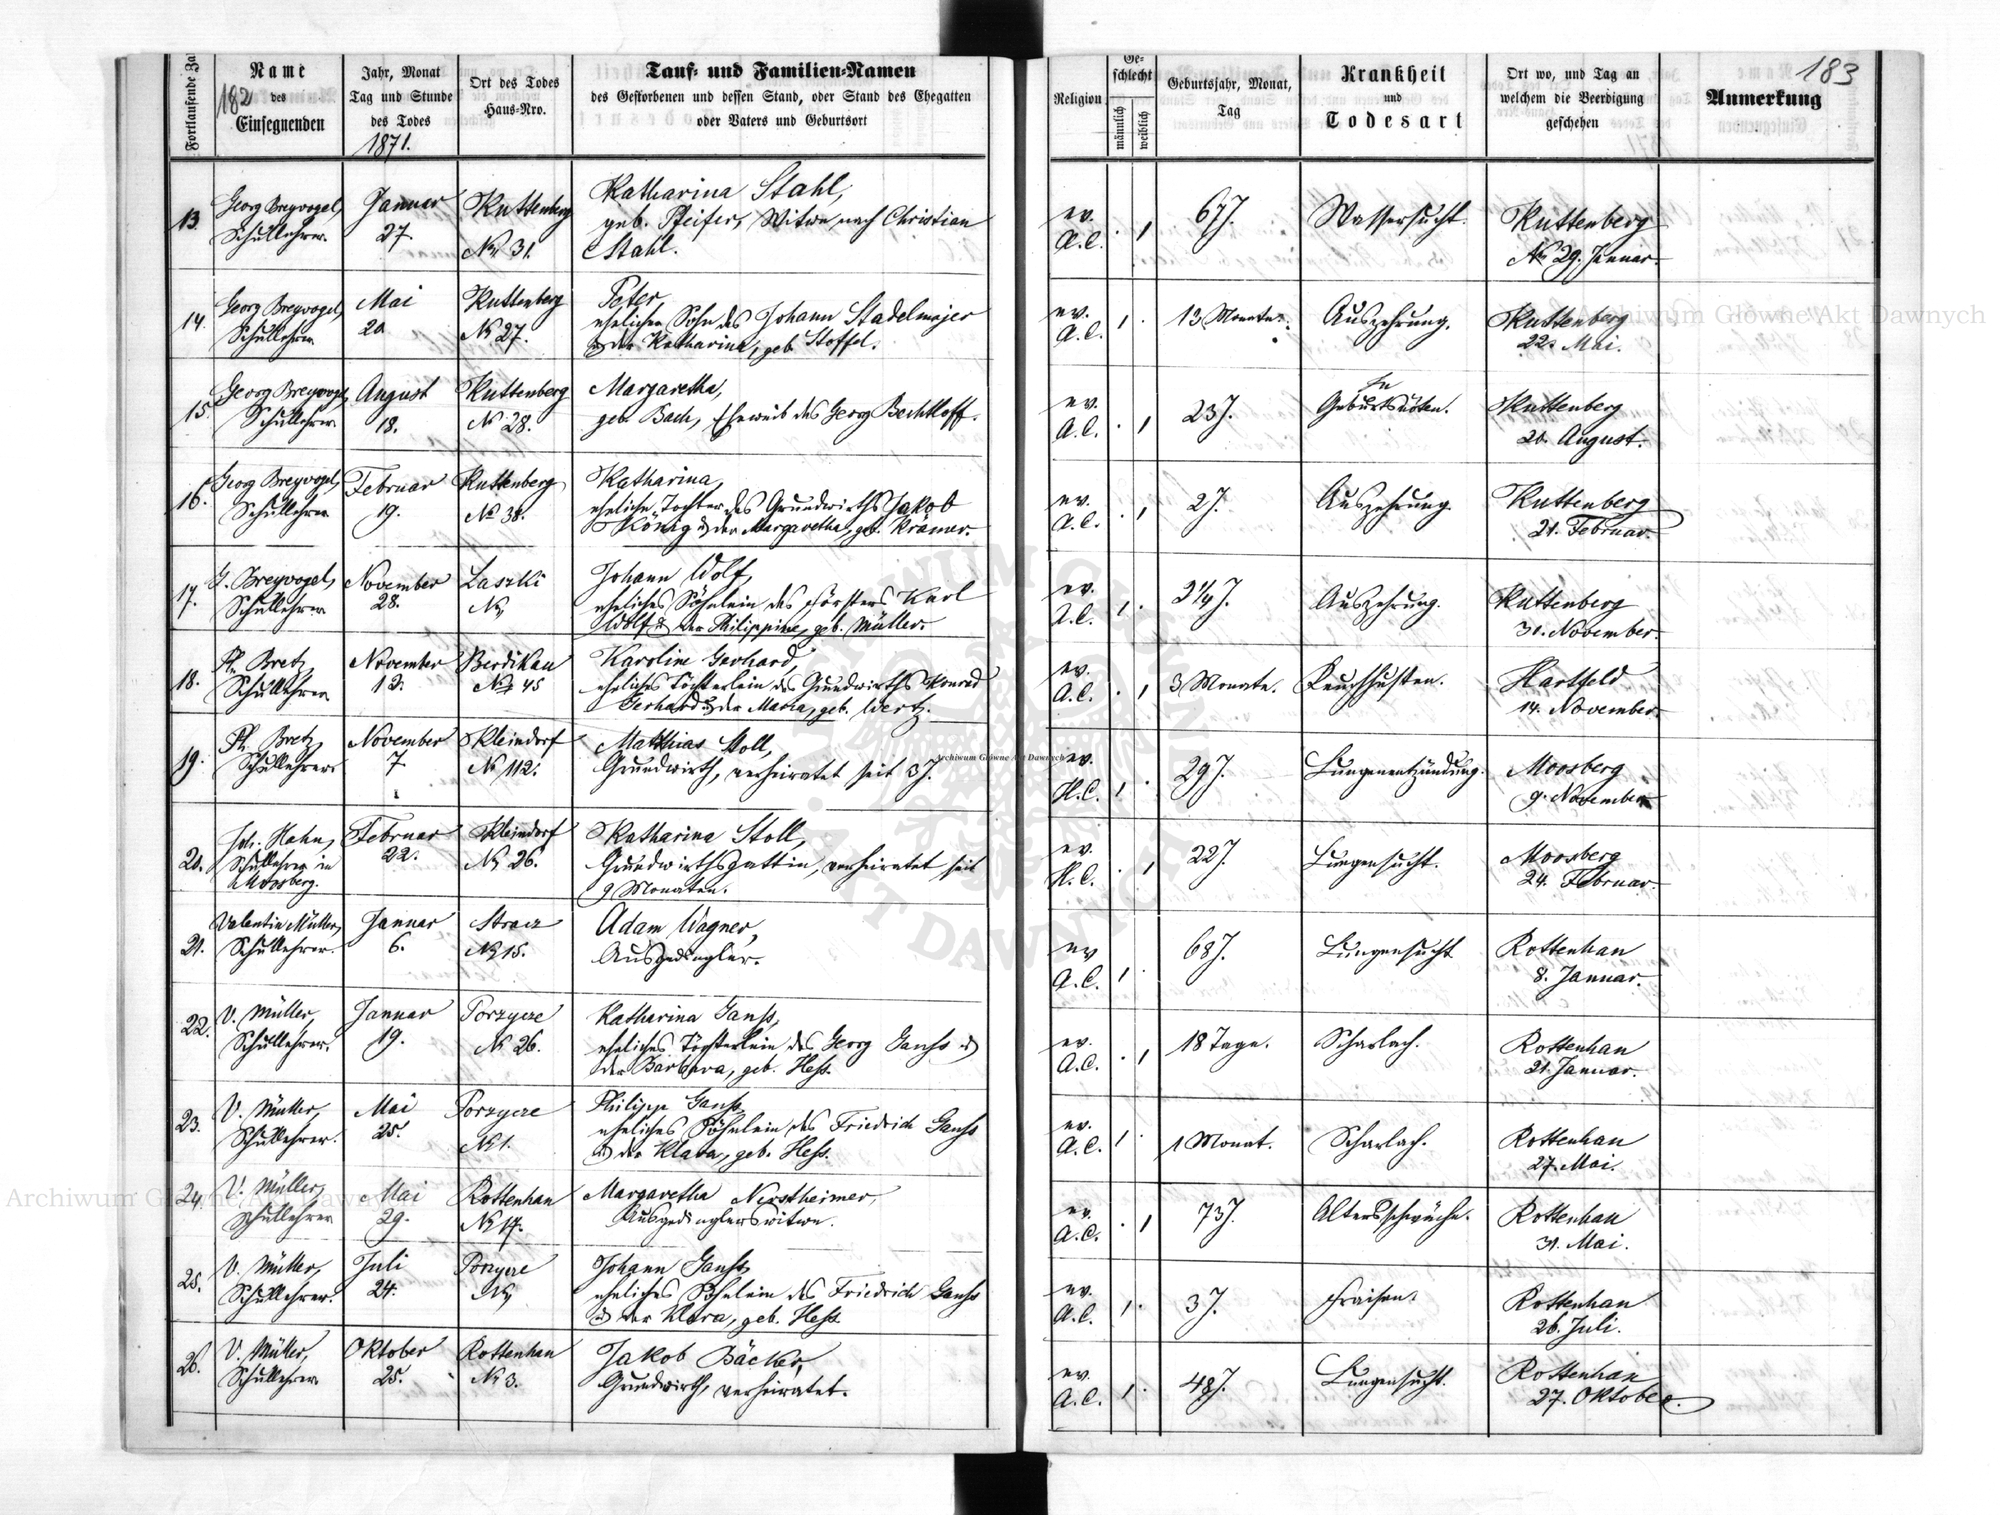 182
183
Fortlaufende Za
Name
des
Einsegnenden
Jahr, Monat
Tag und Stunde
des Todes
1871.
Ort des Todes
Haus-Nro.
Tauf- und Familien-Namen
des Gestorbenen und dessen Stand, oder Stand des Ehegatten
oder Vaters und Geburtsort
Religion
Ge-
schlecht
männlich
weiblich
Geburtsjahr, Monat,
Tag
Krankheit
und
Todesart
Ort wo, und Tag an
welchem die Beerdigung
geschehen
Anmerkung
13.
Georg Breyvogel,
Schullehrer.
Januar
27.
Kuttenberg
No 31.
Katharina Stahl,
geb. Pfeifer, Witwe nach Christian
Stahl.
ev.
A.C.
1
67 J.
Wassersucht.
Kuttenberg
29. Januar.
14.
Georg Breyvogel,
Schullehrer
Mai
20
Kuttenberg
No 27.
Peter,
ehelicher Sohn des Johann Stadelmajer
& der Katharina, geb. Stoffel.
ev.
A.C.
1
13 Monate.
Auszehrung.
Kuttenberg
22. Mai.
15.
Georg Breyvogel,
Schullehrer
August
18.
Kuttenberg
No 28.
Margaretha,
geb. Bach, Eheweib des Georg Bechtloff.
ev.
A.C.
1
23 J.
In
Geburtsnöten.
Kuttenberg
20. August.
16.
Georg Breyvogel,
Schullehrer
Februar
19.
Kuttenberg
No 38.
Katharina,
eheliche Tochter des Grundwirths Jakob
König & der Margaretha, geb. Krämer.
ev.
A.C.
1
2 J.
Auszehrung.
Kuttenberg
21. Februar.
17.
G. Breyvogel,
Schullehrer
November
28.
Laszki
No
Johann Wolf,
eheliches Söhnlein des Försters Karl
Wolf & der Philippine, geb. Müller.
ev.
A.C.
1
2 1/4 J.
Auszehrung.
Kuttenberg
30. November.
18.
Ph. Bretz
Schullehrer
November
12.
Berdikau
No 45
Karoline Gerhard,
eheliches Töchterlein des Grundwirths Konrad
Gerhard & der Maria, geb. Wertz.
ev.
A.C.
1
3 Monate.
Keuchhusten.
Hartfeld
14. November.
19.
Ph. Bretz
Schullehrer
November
7.
Kleindorf
No 112.
Matthias Stoll,
Grundwirth, verheiratet seit 3 J.
ev.
H.C.
1
29 J.
Lungenentzündung.
Moosberg
9. November
20.
Joh. Hahn,
Schullehrer in
Moosberg.
Februar
22.
Kleindorf
No 26.
Katharina Stoll,
Grundwirthsgattin, verheiratet seit
9 Monaten.
ev.
H.C.
1
22 J.
Lungensucht.
Moosberg
24. Februar.
21.
Valentin Müller,
Schullehrer.
Januar
6.
Stracz
No 15.
Adam Wagner,
Ausgedingler.
ev
A.C.
1
68 J.
Lungensucht
Rottenhan
8. Januar.
22.
V. Müller,
Schullehrer.
Januar
19.
Porzycze
No 26.
Katharina Ganss,
eheliches Töchterlein des Georg Ganss &
der Barbara, geb. Hess.
ev.
A.C.
1
18 Tage.
Scharlach.
Rottenhan
21. Januar.
23.
V. Müller,
Schullehrer.
Mai
25.
Porzycze
No 1.
Philipp Ganss,
eheliches Söhnlein des Friedrich Ganss
& der Klara, geb. Hess.
ev.
A.C.
1
1 Monat.
Scharlach.
Rottenhan
27. Mai.
24.
V. Müller,
Schullehrer
Mai
29.
Rottenhan
No 17.
Margaretha Nerstheimer,
Ausgedinglerswitwe.
ev.
A.C.
1
73 J.
Altersschwäche.
Rottenhan
31. Mai.
25.
V. Müller,
Schullehrer.
Juli
24.
Porzycze
No
Johann Ganss,
eheliches Söhnlein des Friedrich Ganss
& der Klara, geb. Hess.
ev.
A.C.
1
3 J.
Fraisen.
Rottenhan
26. Juli.
26.
V. Müller,
Schullehrer
Oktober
25.
Rottenhan
No 3.
Jakob Bäcker,
Grundwirth, verheiratet.
ev.
A.C.
1
48 J.
Lungensucht.
Rottenhan
27. Oktober.
Archiwum Główne Akt Dawnych
Archiwum Główne Akt Dawnych
Archiwum Główne Akt Dawnych
ARCHIWUM GŁÓWNE AKT DAWNYCH